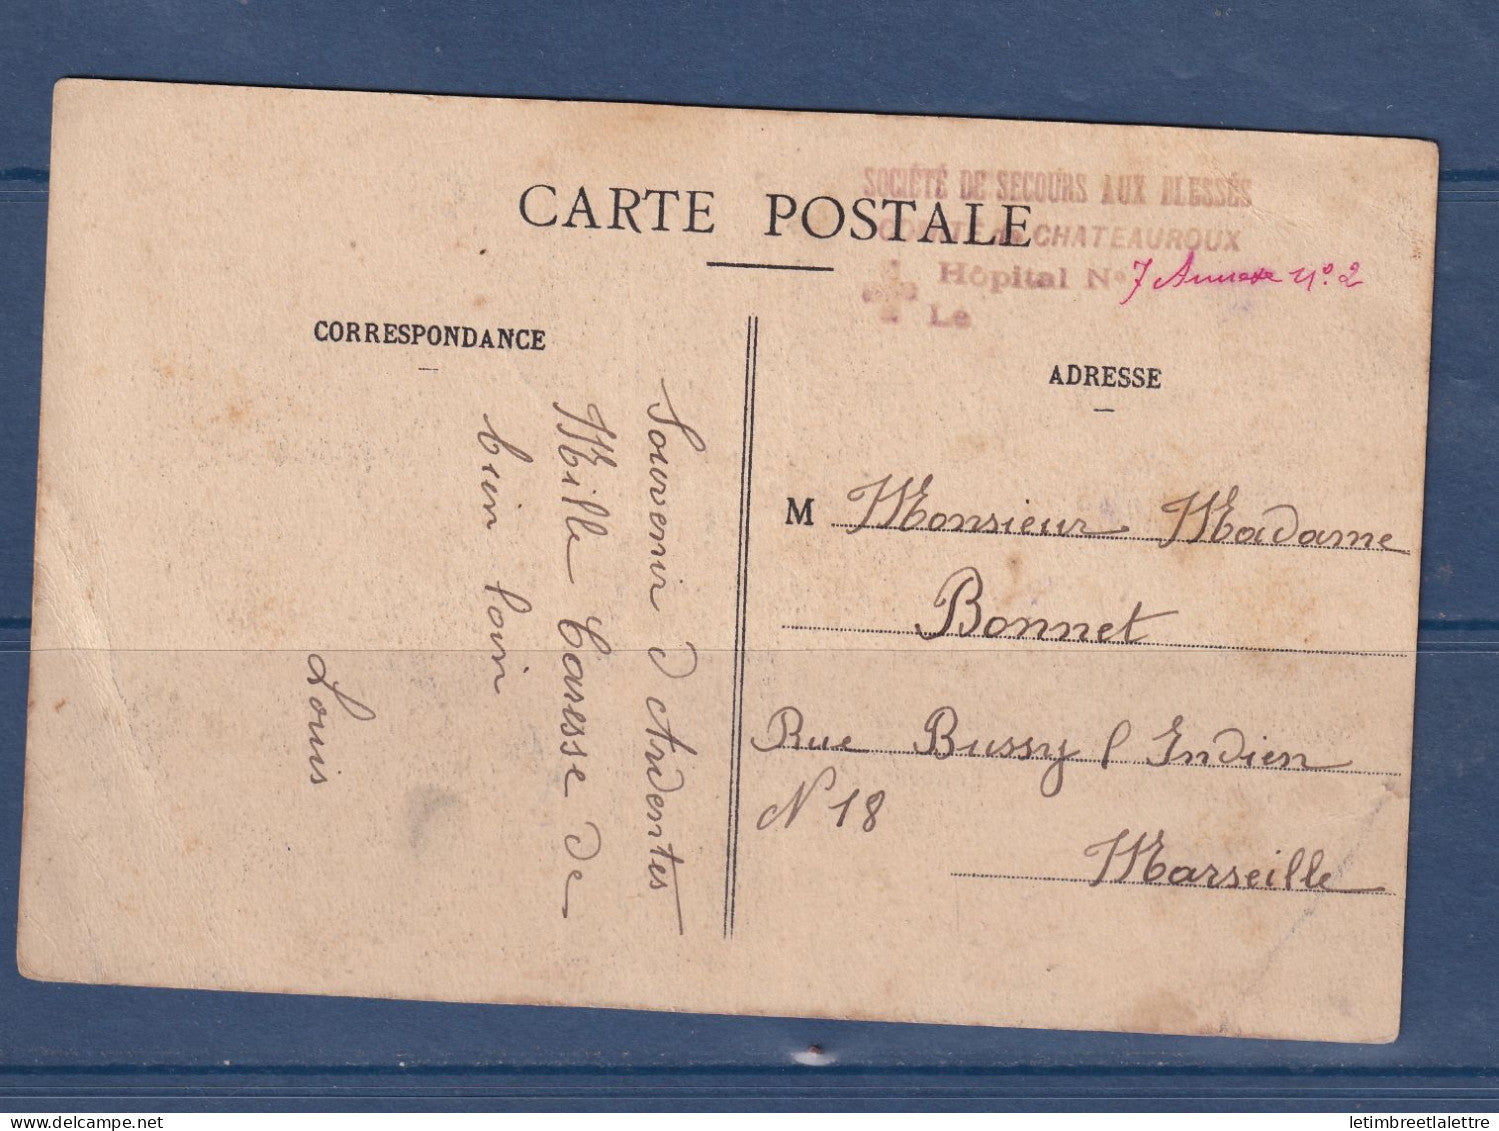 CARTE POSTALE
SOCIÉTÉ DE SECOURS AUX BLESSÉS
COMITÉ de CHATEAUROUX
Hôpital No 7 Annexe No 2
Le
CORRESPONDANCE
Souvenir d'Ardentes
Mille Caresse de
bien loin
Louis
ADRESSE
M Monsieur Madame
Bonnet
Rue Bussy l Indien
N 18
Marseille
letimbreetlalettre